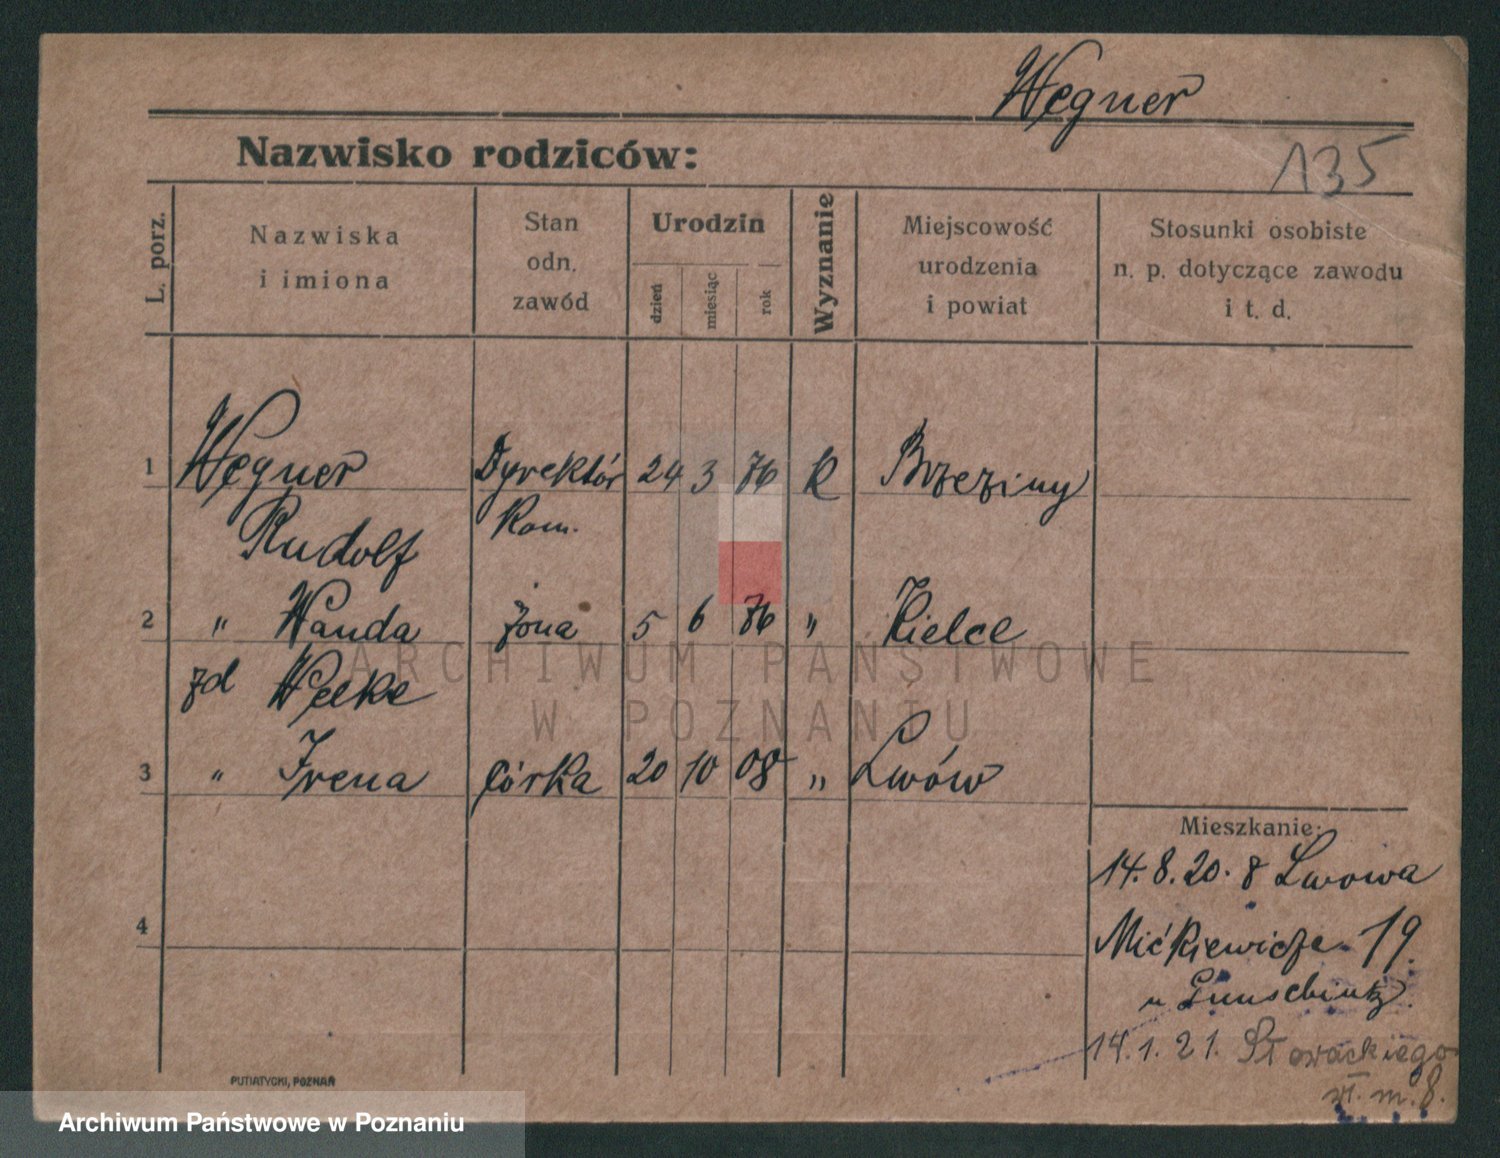 Wegner
135
Nazwisko rodziców:
L. porz.
Nazwiska
i imiona
Stan
odn.
zawód
Urodzin
dzień
miesiąc
rok
Wyznanie
Miejscowość
urodzenia
i powiat
Stosunki osobiste
n. p. dotyczące zawodu
i t. d.
1 Wegner Dyrektór 24 3 76 k Brzeziny
Rudolf Kom.
2 " Wanda żona 5 6 76 " Kielce
zd Welke
3 " Irena córka 20 10 08 " Lwów
4
Mieszkanie:
14.8.20. z Lwowa
Mićkiewicza 19.
u
14.1.21. Słowackiego
m. 8.
PUTIATYCKI, POZNAŃ
ARCHIWUM PAŃSTWOWE
W POZNANIU
Archiwum Państwowe w Poznaniu